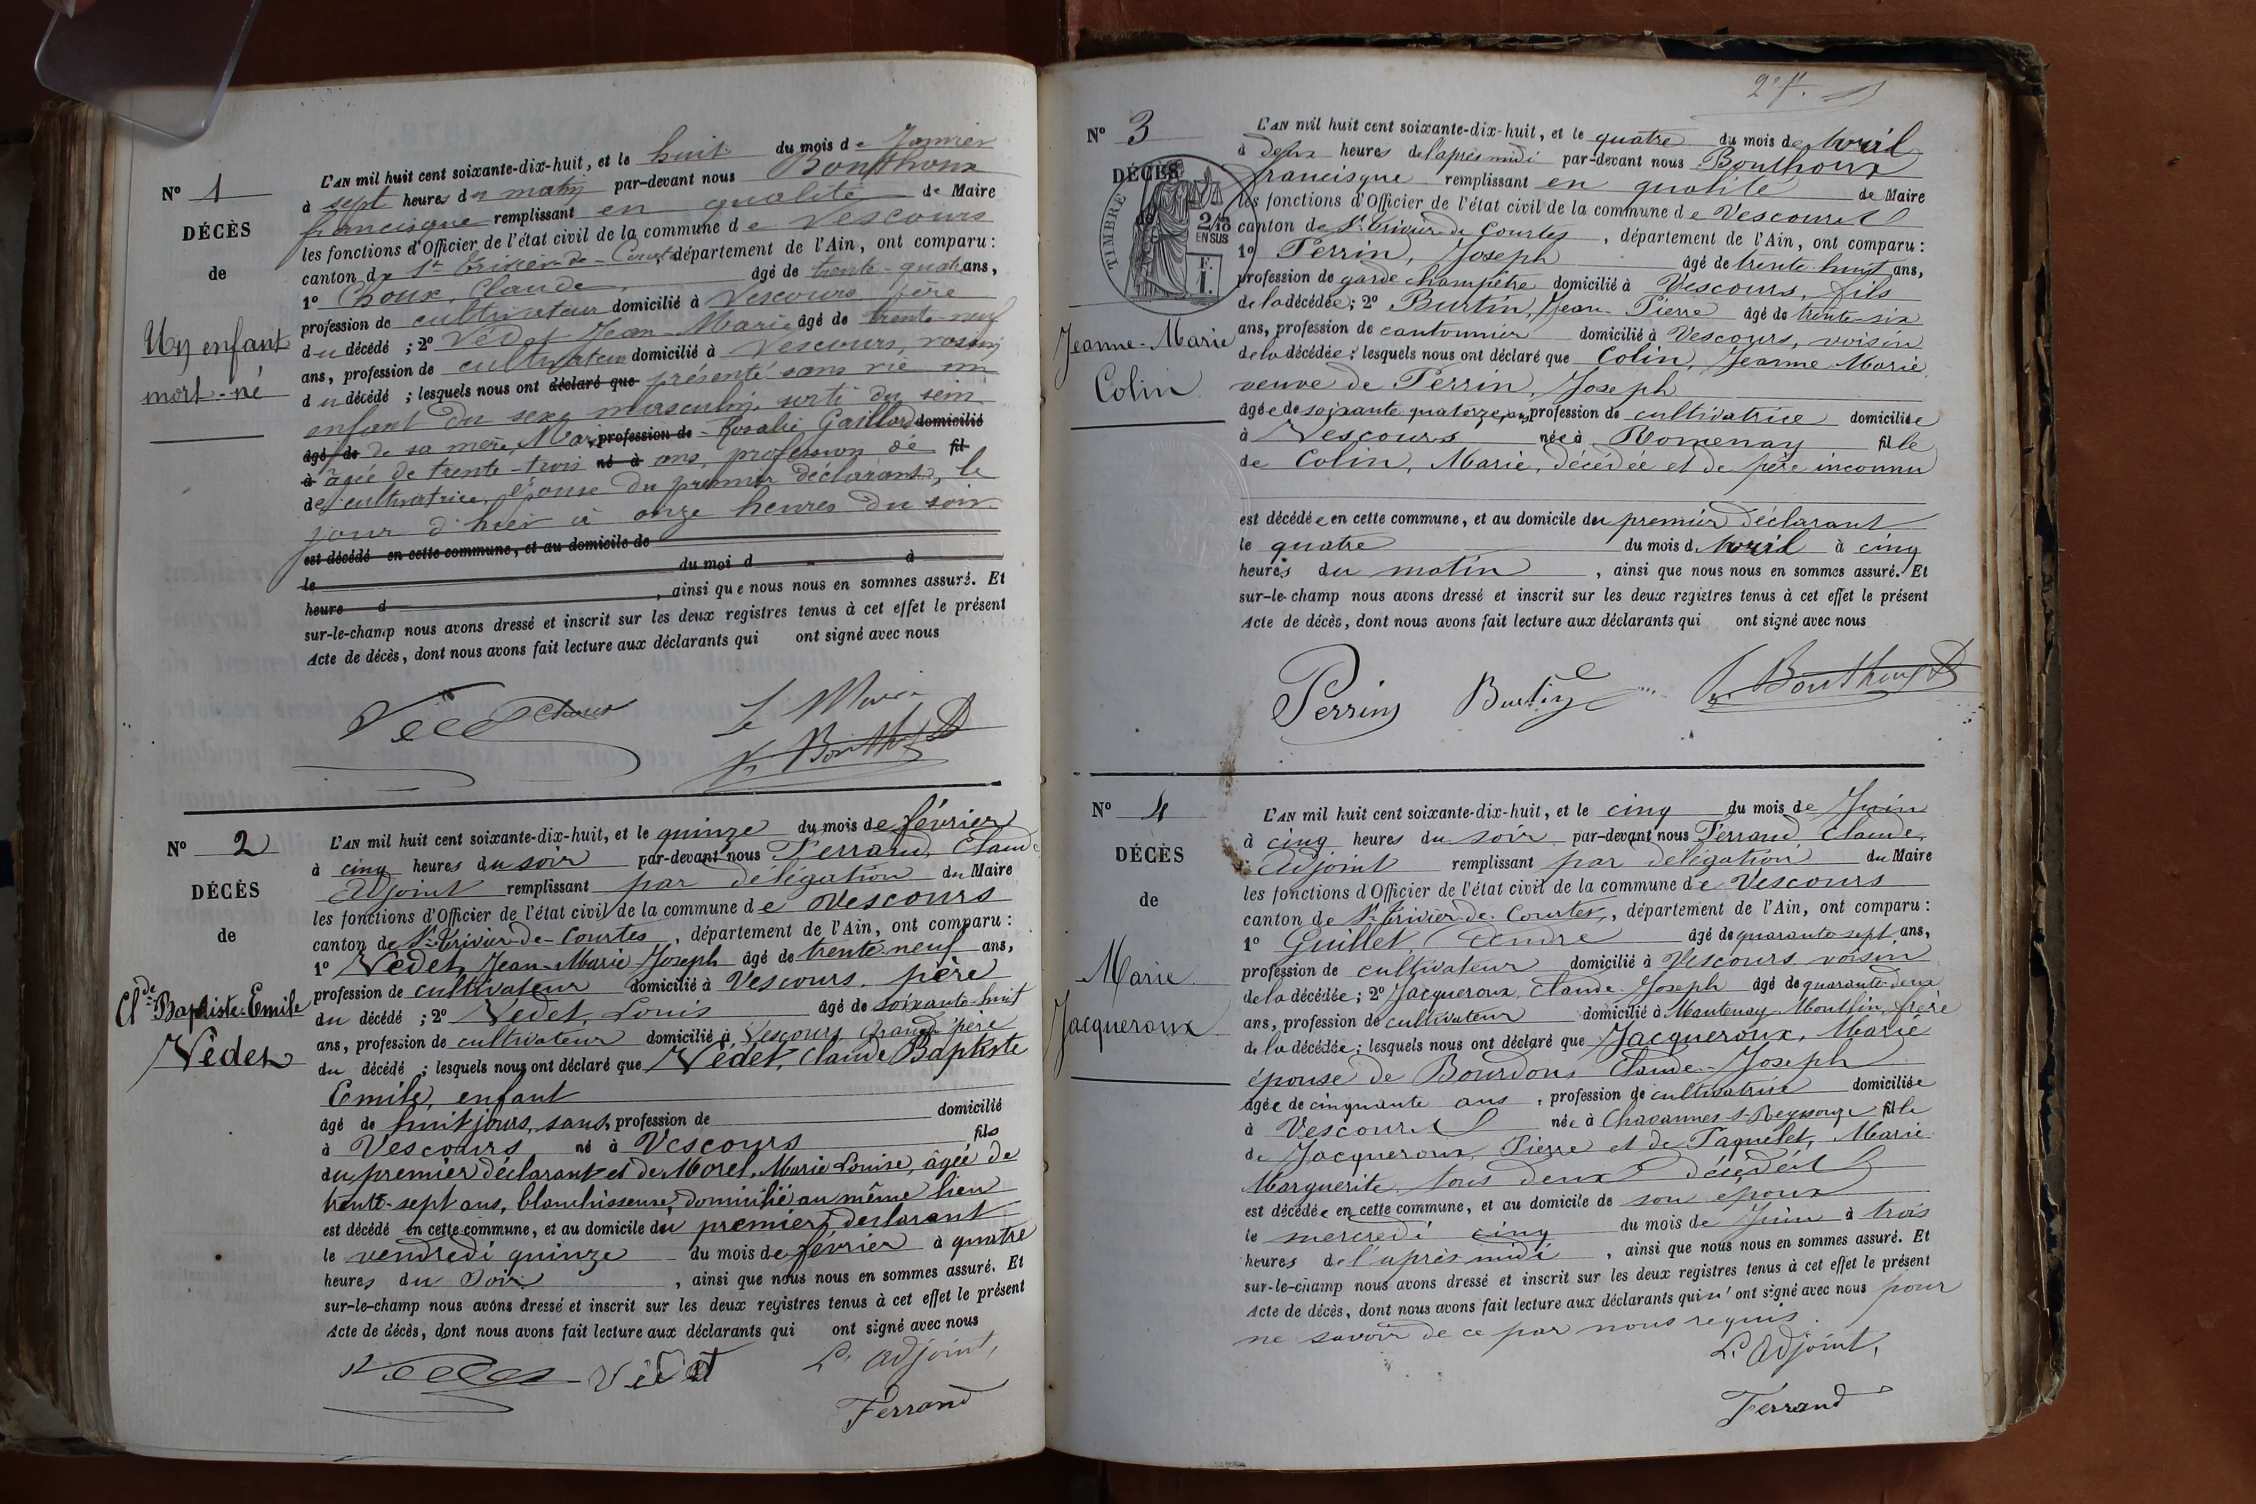 N° 1
DÉCÈS
de
Un enfant
mort-né
L'AN mil huit cent soixante-dix-huit, et le huit du mois de Janvier
à sept heures du matin par-devant nous Bonthoux
francisque remplissant en qualité de Maire
les fonctions d'Officier de l'état civil de la commune de Vescours
canton de St Trivier-de-Courtes, département de l'Ain, ont comparu :
1° Choux, Claude, âgé de trente-quatre ans,
profession de cultivateur domicilié à Vescours père
du décédé ; 2° Védet Jean-Marie âgé de trente-neuf
ans, profession de cultivateur domicilié à Vescours, voisin
du décédé ; lesquels nous ont déclaré que présenté sans vie un
enfant du sexe masculin, sorti du sein
âgé de de sa mère, Marie profession de Rosalie Gaillard domicilié
à âgée de trente-trois né à ans, profession de fil
de cultivatrice, épouse du premier déclarant, le
jour d'hier à onze heures du soir
est décédé en cette commune, et au domicile de
le du moi d à
heure d , ainsi que nous nous en sommes assuré. Et
sur-le-champ nous avons dressé et inscrit sur les deux registres tenus à cet effet le présent
Acte de décès, dont nous avons fait lecture aux déclarants qui ont signé avec nous
Védet Choux Le Maire
F. Bonthoux
N° 2
DÉCÈS
de
Cl.de Baptiste-Emile
Védet
L'AN mil huit cent soixante-dix-huit, et le quinze du mois de février
à cinq heures du soir par-devant nous Ferrand, Claude
Adjoint remplissant par délégation du Maire
les fonctions d'Officier de l'état civil de la commune de Vescours
canton de St Trivier-de-Courtes, département de l'Ain, ont comparu :
1° Védet, Jean-Marie Joseph âgé de trente-neuf ans,
profession de cultivateur domicilié à Vescours, père
du décédé ; 2° Védet, Louis âgé de soixante-huit
ans, profession de cultivateur domicilié à Vescours, Grand-père
du décédé ; lesquels nous ont déclaré que Védet, Claude Baptiste
Emile, enfant
âgé de huit jours, sans profession de domicilié
à Vescours né à Vescours fils
du premier déclarant et de Morel, Marie Louise, âgée de
trente-sept ans, blanchisseuse, domicilié au même lieu
est décédé en cette commune, et au domicile du premier déclarant
le vendredi quinze du mois de février à quatre
heures du soir , ainsi que nous nous en sommes assuré. Et
sur-le-champ nous avons dressé et inscrit sur les deux registres tenus à cet effet le présent
Acte de décès, dont nous avons fait lecture aux déclarants qui ont signé avec nous
Védet Védet L'Adjoint,
Ferrand
2e f.
N° 3
DÉCÈS
de
TIMBRE
2/10
EN SUS
Jeanne-Marie
Colin
L'AN mil huit cent soixante-dix-huit, et le quatre du mois de Avril
à deux heures de l'après midi par-devant nous Bonthoux
francisque remplissant en qualité de Maire
les fonctions d'Officier de l'état civil de la commune de Vescours
canton de St Trivier-de-Courtes, département de l'Ain, ont comparu :
1° Perrin, Joseph âgé de trente-huit ans,
profession de garde champêtre domicilié à Vescours, fils
de la décédée ; 2° Burtin, Jean-Pierre âgé de trente-six
ans, profession de cantonnier domicilié à Vescours, voisin
de la décédée ; lesquels nous ont déclaré que Colin, Jeanne-Marie
veuve de Perrin, Joseph
âgée de soixante quatorze ans, profession de cultivatrice domiciliée
à Vescours née à Romenay fille
de Colin, Marie, décédée et de père inconnu
est décédée en cette commune, et au domicile du premier déclarant
le quatre du mois d'Avril à cinq
heures du matin , ainsi que nous nous en sommes assuré. Et
sur-le-champ nous avons dressé et inscrit sur les deux registres tenus à cet effet le présent
Acte de décès, dont nous avons fait lecture aux déclarants qui ont signé avec nous
Perrin Burtin F. Bonthoux
N° 4
DÉCÈS
de
Marie
Jacqueroux
L'AN mil huit cent soixante-dix-huit, et le cinq du mois de Juin
à cinq heures du soir par-devant nous Ferrand, Claude,
Adjoint remplissant par délégation du Maire
les fonctions d'Officier de l'état civil de la commune de Vescours
canton de St Trivier-de-Courtes, département de l'Ain, ont comparu :
1° Guillet, André âgé de quarante-sept ans,
profession de cultivateur domicilié à Vescours, voisin
de la décédée ; 2° Jacqueroux, Claude-Joseph âgé de quarante-deux
ans, profession de cultivateur domicilié à Mantenay-Montlin, frère
de la décédée ; lesquels nous ont déclaré que Jacqueroux, Marie
épouse de Bourdon, Claude-Joseph
âgée de cinquante ans , profession de cultivatrice domiciliée
à Vescours née à Chavannes s-Reyssouze fille
de Jacqueroux, Pierre et de Paquelet, Marie
Marguerite, tous deux décédés
est décédée en cette commune, et au domicile de son époux
le mercredi cinq du mois de Juin à trois
heures de l'après midi , ainsi que nous nous en sommes assuré. Et
sur-le-champ nous avons dressé et inscrit sur les deux registres tenus à cet effet le présent
Acte de décès, dont nous avons fait lecture aux déclarants qui n'ont signé avec nous pour
ne savoir de ce par nous requis.
L'Adjoint,
Ferrand